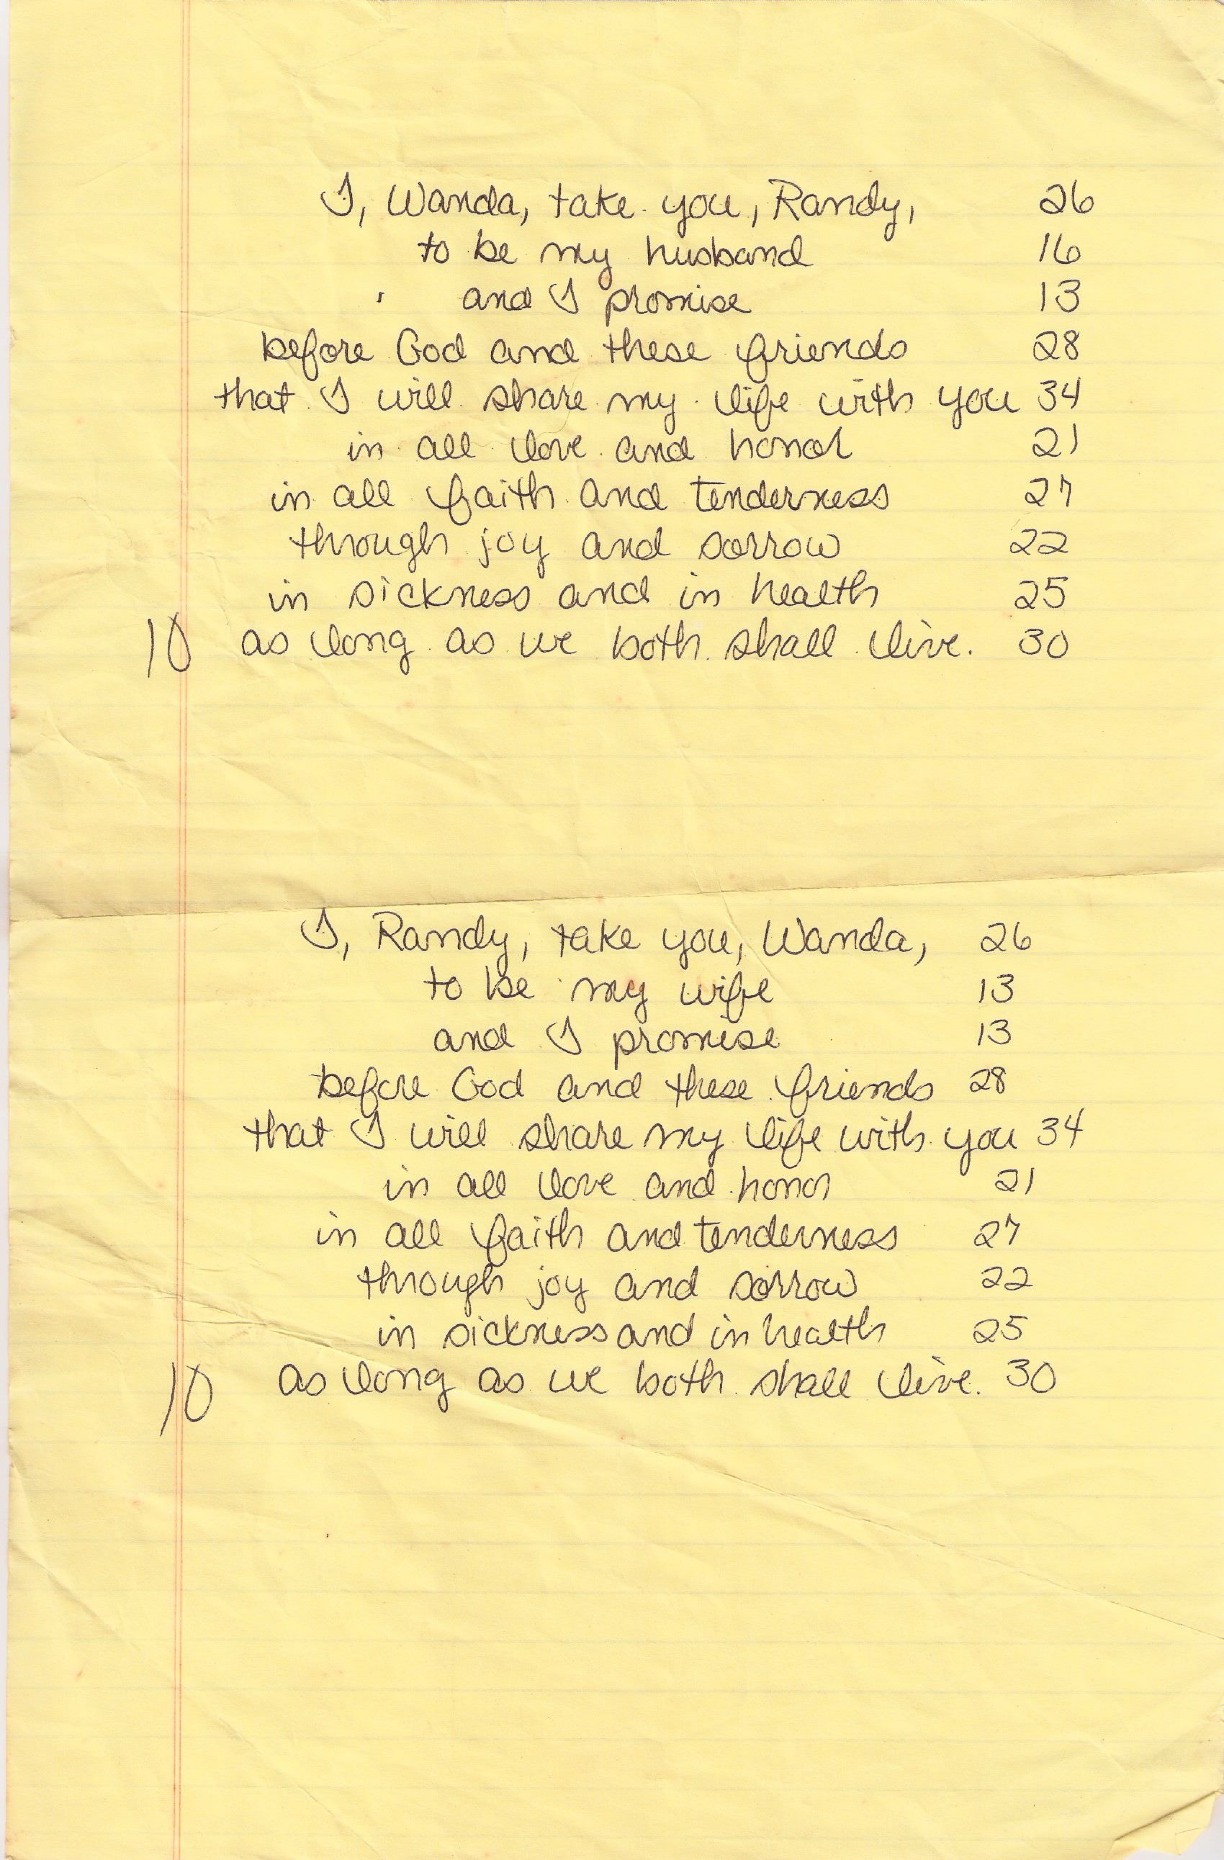 I, Wanda, take you, Randy, 26
to be my husband 16
and I promise 13
before God and these friends 28
that I will share my life with you 34
in all love and honor 21
in all faith and tenderness 27
through joy and sorrow 22
in sickness and in health 25
10 as long as we both shall live. 30
I, Randy, take you, Wanda, 26
to be my wife 13
and I promise 13
before God and these friends 28
that I will share my life with you 34
in all love and honor 21
in all faith and tenderness 27
through joy and sorrow 22
in sickness and in health 25
10 as long as we both shall live. 30